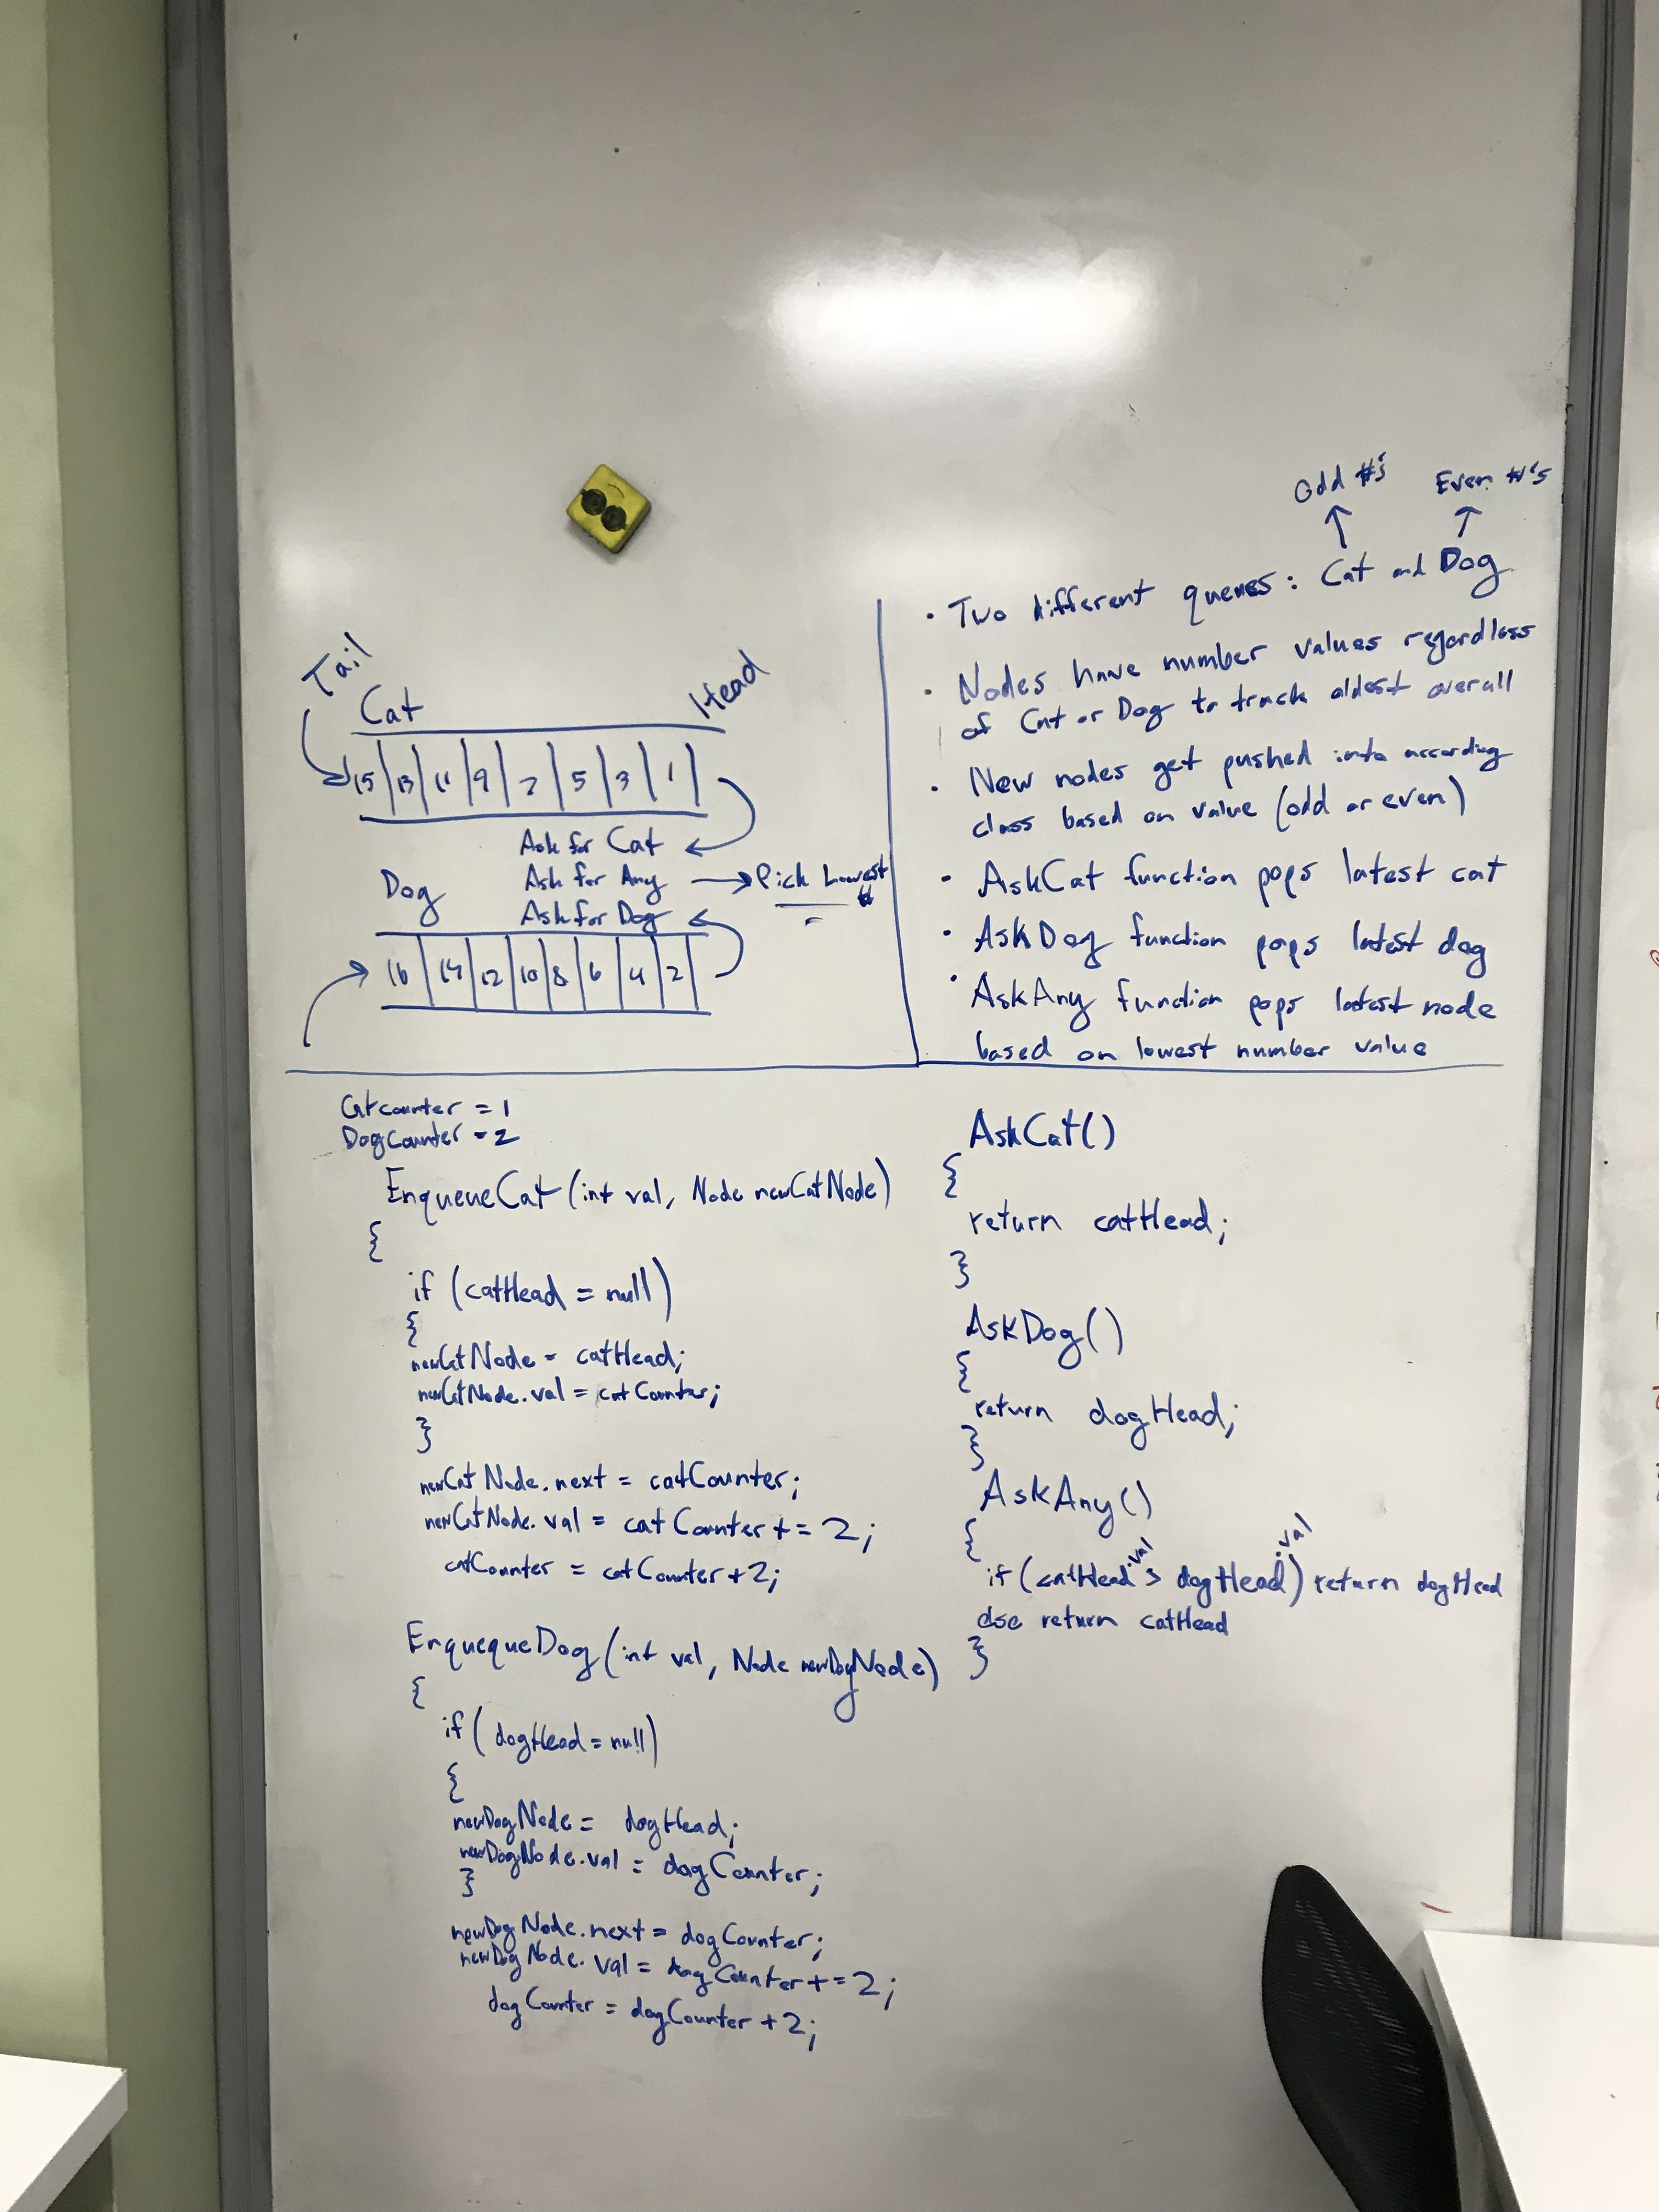 Tail
Cat
Head
15 13 11 9 7 5 3 1
Ask for Cat
Ask for Any → Pick Lowest #
Ask for Dog
Dog
16 14 12 10 8 6 4 2
Odd #'s Even #'s
• Two different queues: Cat and Dog
• Nodes have number values regardless
of Cat or Dog to track oldest overall
• New nodes get pushed into according
class based on value (odd or even)
• AskCat function pops latest cat
• AskDog function pops latest dog
• AskAny function pops latest node
based on lowest number value
Catcounter = 1
DogCounter = 2
EnqueueCat (int val, Node newCatNode)
{
if (catHead = null)
{
newCatNode = catHead;
newCatNode.val = catCounter;
}
newCatNode.next = catCounter;
newCatNode.val = catCounter += 2;
catCounter = catCounter + 2;
EnquequeDog (int val, Node newDogNode)
{
if (dogHead = null)
{
newDogNode = dogHead;
newDogNode.val = dogCounter;
}
newDogNode.next = dogCounter;
newDogNode.val = dogCounter += 2;
dogCounter = dogCounter + 2;
AskCat()
{
return catHead;
}
AskDog()
{
return dogHead;
}
AskAny()
{
if (catHead.val > dogHead.val) return dogHead
else return catHead
}